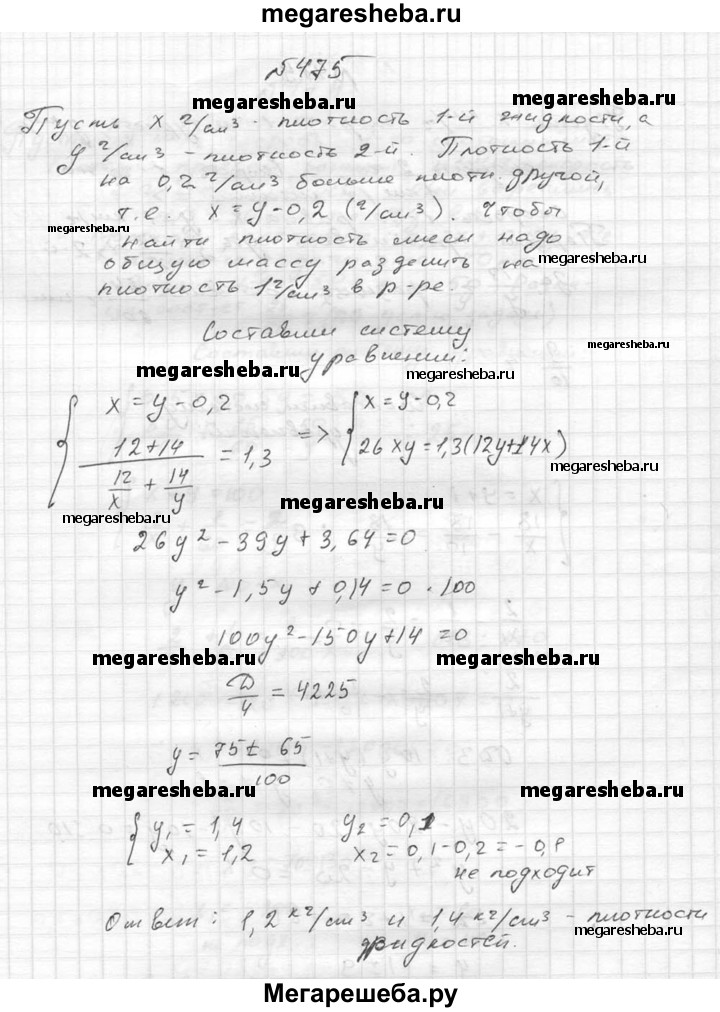 megaresheba.ru
№475
megaresheba.ru megaresheba.ru
Пусть x г/см³ - плотность 1-й жидкости, а
y г/см³ - плотность 2-й. Плотность 1-й
на 0,2 г/см³ больше плотн. другой,
т.е. x = y - 0,2 (г/см³). Чтобы
megaresheba.ru
найти плотность смеси надо
общую массу разделить на
megaresheba.ru
плотность 1 г/см³ в р-ре.
Составим систему
уравнений:
megaresheba.ru
megaresheba.ru megaresheba.ru
{ x = y - 0,2 => { x = y - 0,2
(12+14)/(12/x + 14/y) = 1,3 26xy = 1,3(12y+14x)
megaresheba.ru
megaresheba.ru
megaresheba.ru
26y² - 39y + 3,64 = 0
y² - 1,5y + 0,14 = 0 · 100
100y² - 150y + 14 = 0
megaresheba.ru megaresheba.ru
D/4 = 4225
y = (75 ± 65)/100
megaresheba.ru megaresheba.ru
{ y₁ = 1,4 y₂ = 0,1
x₁ = 1,2 x₂ = 0,1 - 0,2 = - 0,1
не подходит
Ответ: 1,2 кг/см³ и 1,4 кг/см³ - плотности
megaresheba.ru
жидкостей.
Мегарешеба.ру